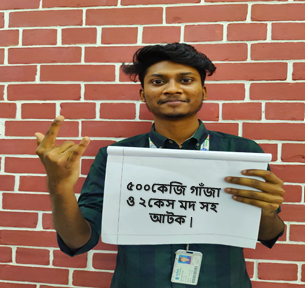 ৫০০কেজি গাঁজা
ও ২কেস মদ সহ
আটক।